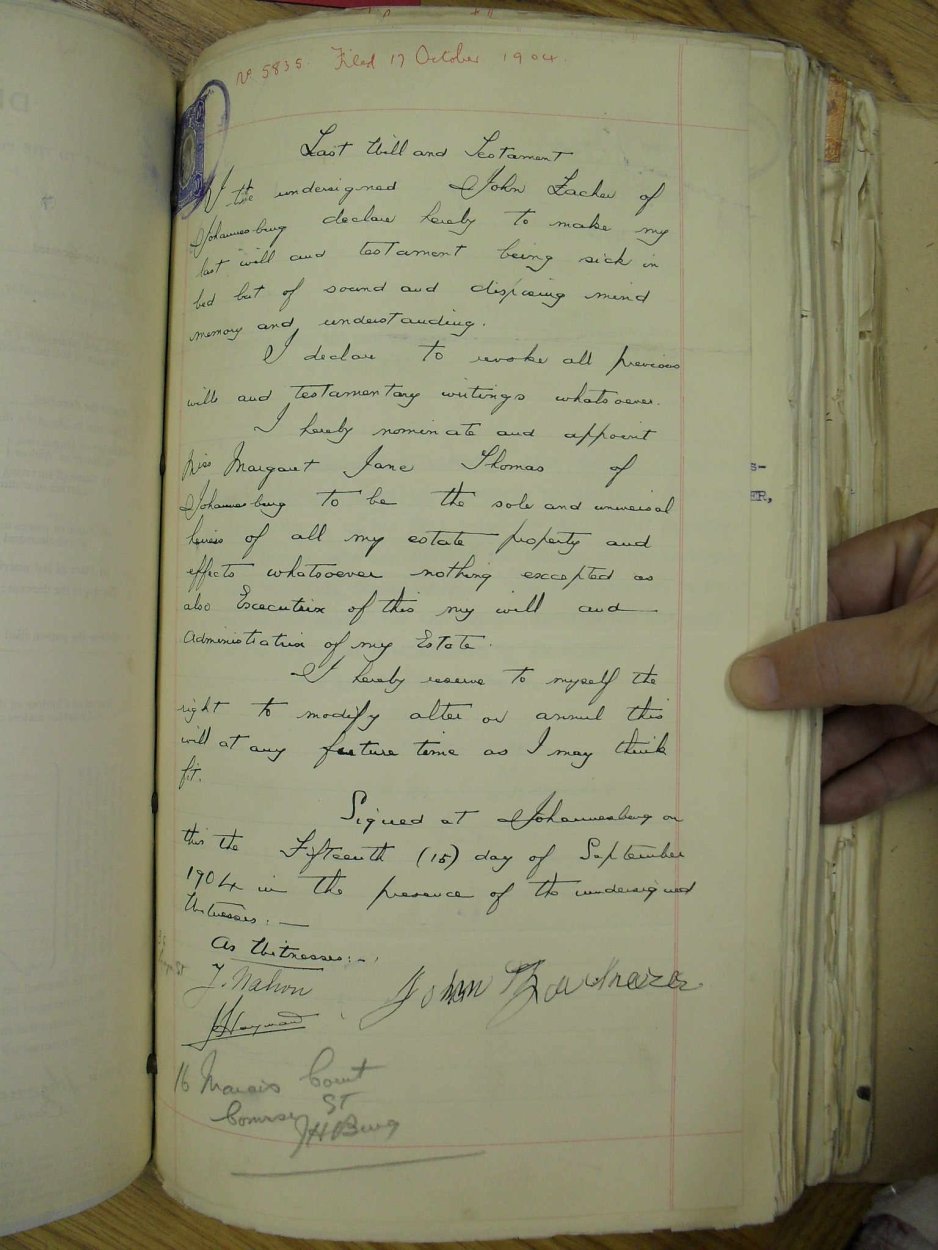 No 5835. Filed 17 October 1904.
Last Will and Testament
I the undersigned John Lacher of
Johannesburg declare hereby to make my
last will and testament being sick in
bed but of sound and disposing mind
memory and understanding.
I declare to revoke all previous
wills and testamentary writings whatsoever.
I hereby nominate and appoint
Miss Margaret Jane Thomas of
Johannesburg to be the sole and universal
heiress of all my estate property and
effects whatsoever nothing excepted as
also Executrix of this my will and
Administratrix of my Estate.
I hereby reserve to myself the
right to modify alter or annul this
will at any future time as I may think
fit.
Signed at Johannesburg on
this the Fifteenth (15) day of September
1904 in the presence of the undersigned
Witnesses:—
As Witnesses:—
John
16 Marais Court
St
JHBurg